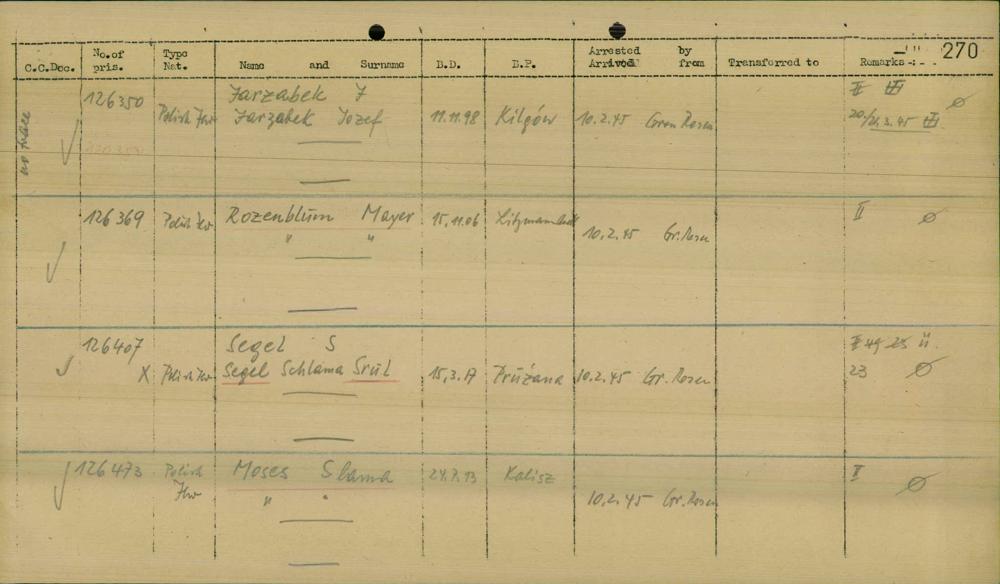 270
C.C.Doc. No.of pris. Type Nat. Name and Surname B.D. B.P. Arrested by Arrived from Transferred to Remarks
126350 Jarzabek J II III
Polish Jew Jarzabek Jozef 11.11.98 10.2.45 Gross Rosen
126369 Polish Jew Rozenblum Mayer 15.11.06 Litzmannstadt II
" " 10.2.45 Gr. Rosen
126407 Segel S
X Polish Jew Segel Schlama Srul 15.3.17 Prużana 10.2.45 Gr. Rosen 23
126473 Polish Moses Slama Kalisz II
Jew " " 10.2.45 Gr. Rosen